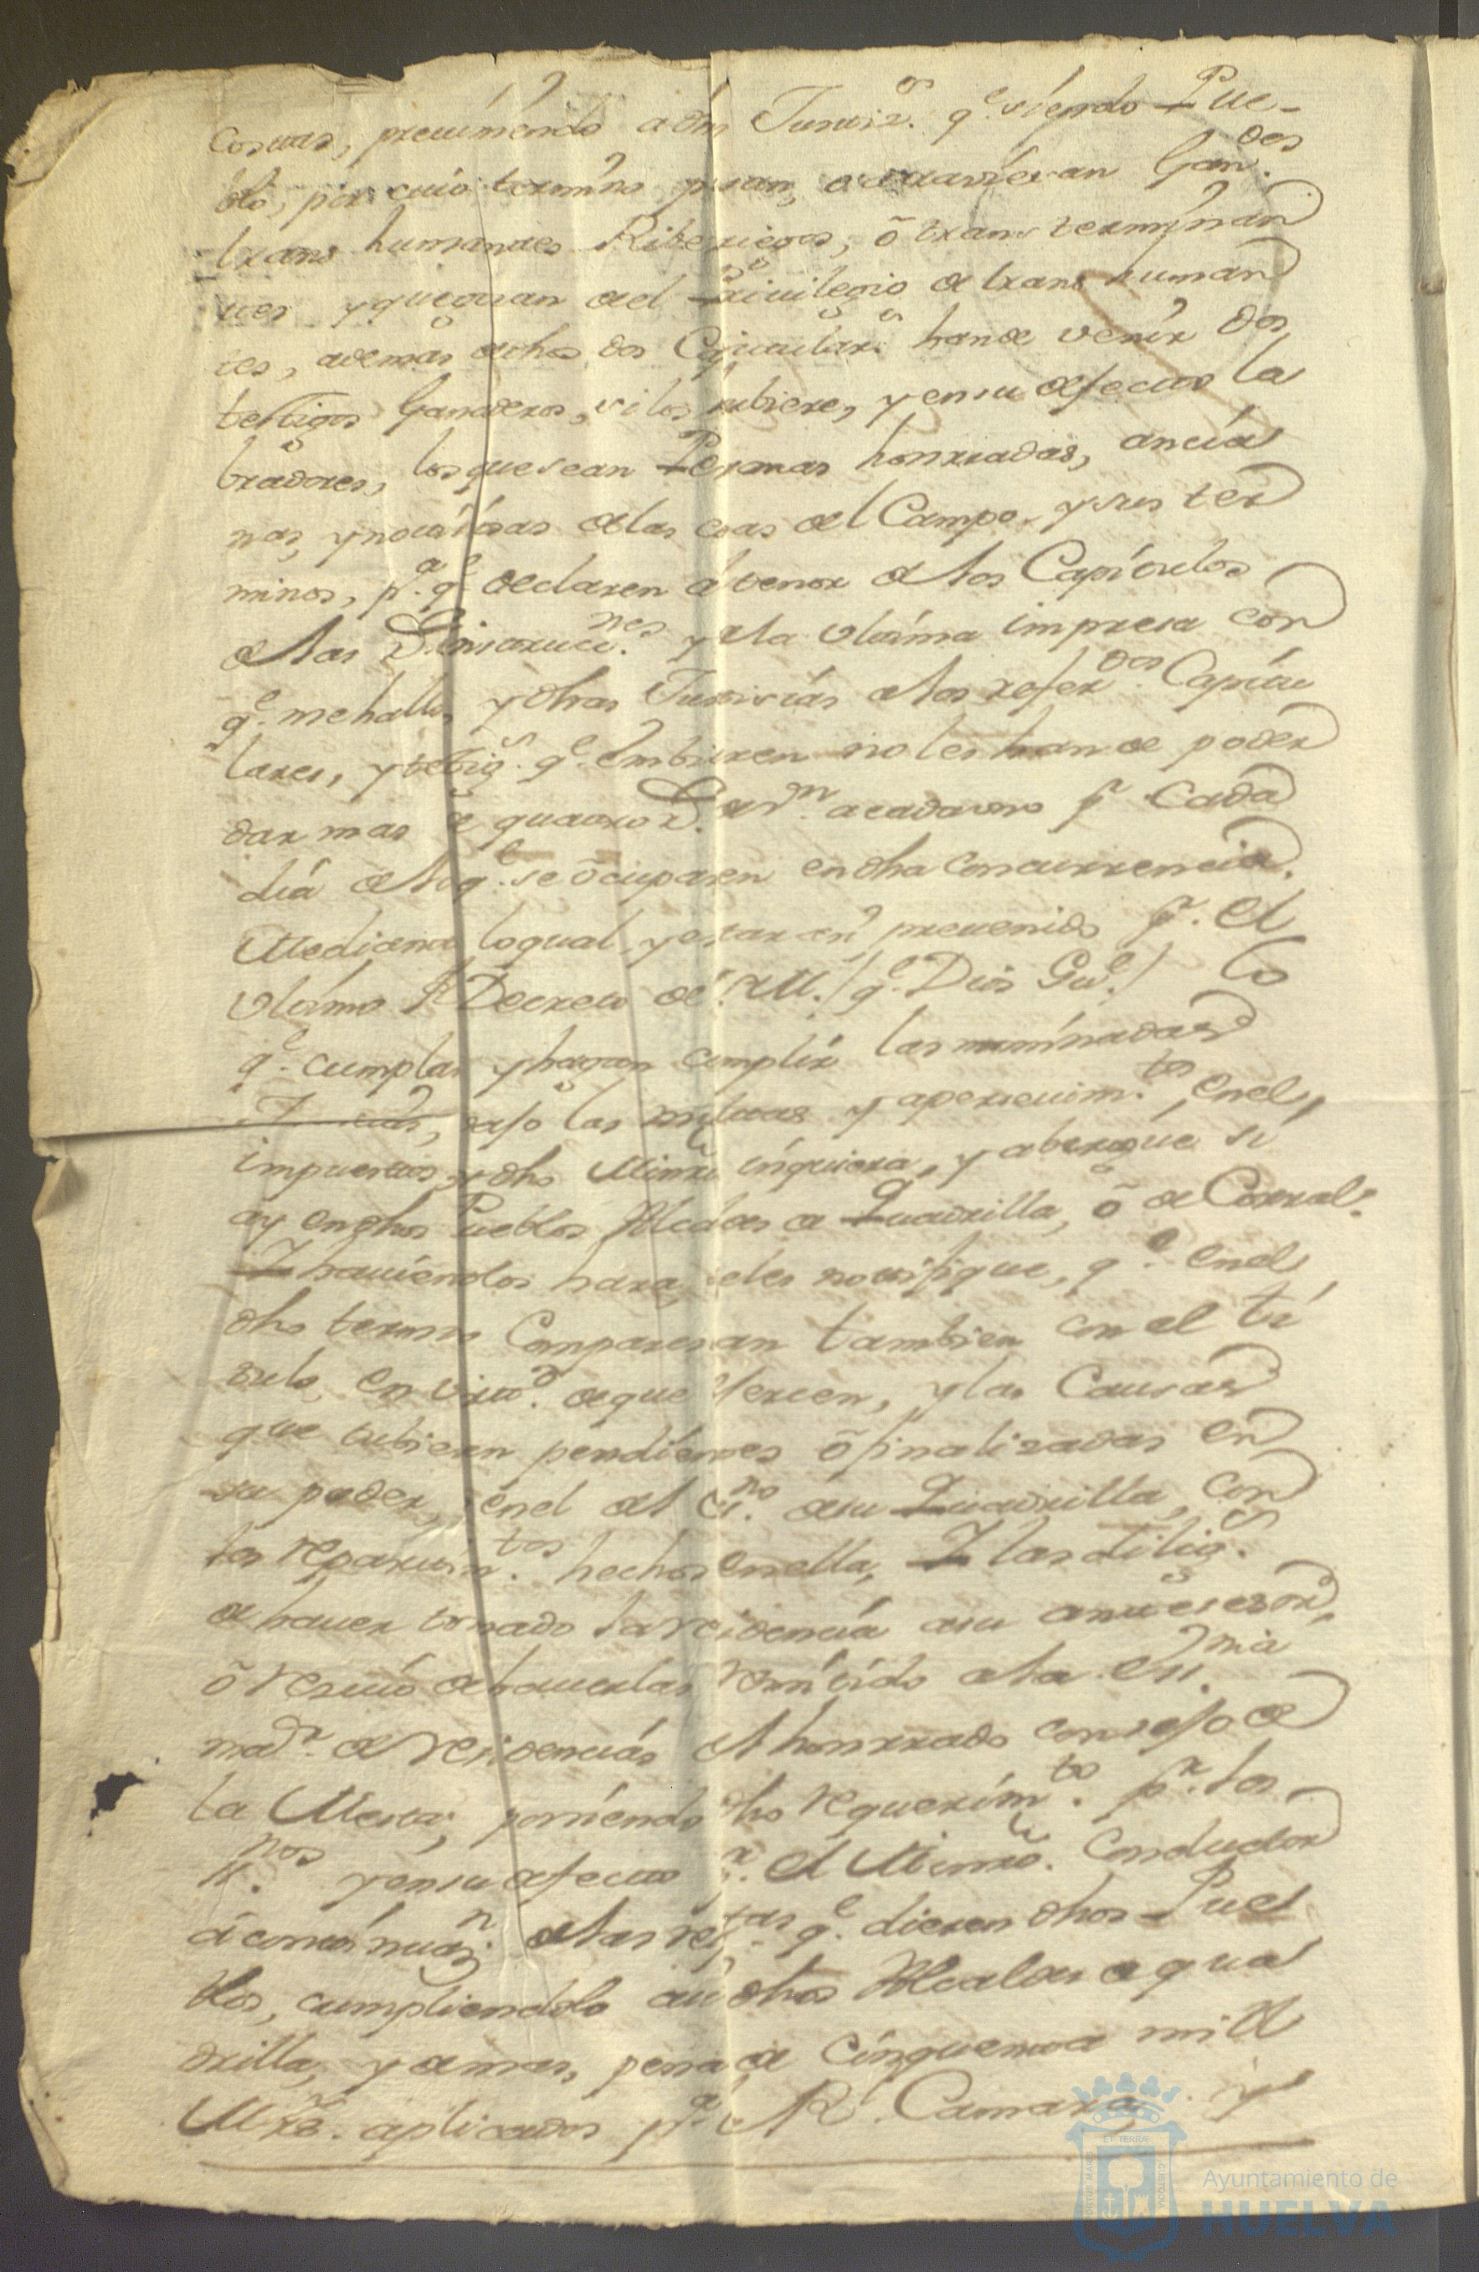 Costas, previniendo a dhas Justiz.as q.e siendo Pue-
blo, por cuio termino pasan, o atraviesan Gan.dos
trans humantes Riberiegos, õ trans terminan
tes y que gozan del Privilegio de trans human
tes, ademas de dhos dos Capitular.s han de venir dos
testigos Ganaderos, si los ubiere, y en su defecto la
bradores, los que sean Personas honrradas, ancia
nas, y noticiosas de las cosas del Campo, y sus ter
minos, p.a q.e declaren á tenor de los Capitulos
de las Ynstruccio.nes y de la Ultima impresa con
q.e me hallo, y dhas Justicias a los refer.dos Capitu
lares, y testig.s q.e embiaren no les han de poder
dar mas de quatro R.s de v.n a cada uno p.r cada
dia de los q.e se õcuparen en dha Concurrencia,
Mediante lo qual, y estar asi prevenido p.r el
Ultimo R.l Decreto de S. M. (q.e Dios Gu.e) lo
q.e cumplan y hagan cumplir las nominadas
Justicias, vajo las multas y apercivim.tos en el
impuestos, y dho Minro inquiera, y aberigue si
ay en dhos Pueblos Alcaldes de Quadrilla, õ de Corral.s
Y haviendolos hara, se les notifique, q.e en el
dho termino Comparescan tambien con el ti
tulo, en virtu.d de que exercen, y las Causas
que tubieren pendientes õ finalizadas en
su poder, ó en el del Es.no de su Quadrilla, con
los repartim.tos hechos en ella, Y las dilig.s
de haver tomado la residencia a su antecesor,
õ recivo de haverlas remitido a la Es.nia
mar. de residencias del honrrado Consejo de
la Mesta, poniendo dho requerim.to p.r los
Es.nos y en su defecto p.r el Minro. Conductor
á continua.n de las resp.tas q.e dieren dhos Pue
blos, cumpliendolo asi dhos Alcaldes de qua
drilla, y demas, pena de Cinquenta mill
Mrs. aplicados p.a la R.l Camara, y
Ayuntamiento de
HUELVA